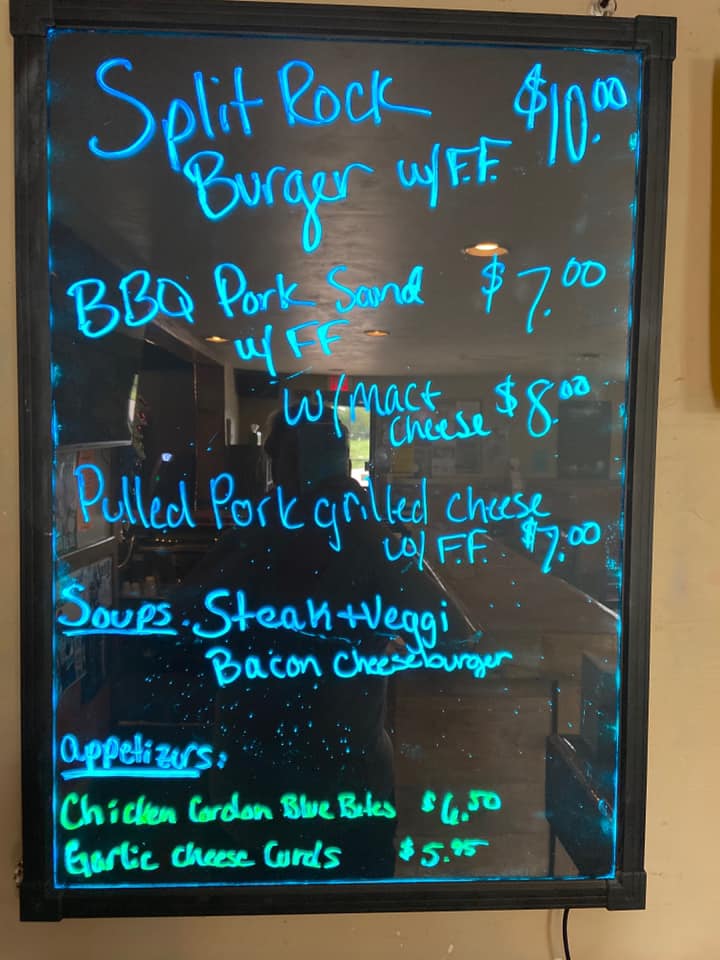 Split Rock $10.00
Burger w/ F.F.
BBQ Pork Sand $7.00
w/ FF
w/ mac+ cheese $8.00
Pulled Pork grilled cheese
w/ F.F. $7.00
Soups. Steak + Veggi
Bacon cheeseburger
appetizers:
Chicken Cordon Blue Bites $6.50
Garlic cheese Curds $5.95